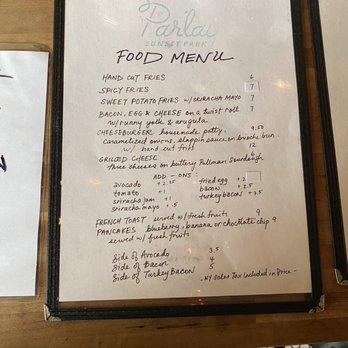 Parlay
SUNSET PARK
FOOD MENU
HAND CUT FRIES 6
SPICY FRIES 7
SWEET POTATO FRIES w/ SRIRACHA MAYO 7
BACON, EGG & CHEESE on a twist roll 7
w/ runny yolk & arugula
CHEESEBURGER housemade patty, 9.50
caramelized onions, slappin sauce on brioche bun
w/ hand cut fries 12
GRILLED CHEESE
three cheeses on buttery Pullman sourdough
ADD-ONS:
avocado +2.25 fried egg +2
tomato +1 bacon +2.5
sriracha jam +1 turkey bacon +3.5
sriracha mayo +.5
FRENCH TOAST served w/ fresh fruits 9
PANCAKES blueberry, banana or chocolate chip 9
served w/ fresh fruits
Side of Avocado 3.5
Side of Bacon 4
Side of Turkey Bacon 5
-NY Sales Tax Included in Price-